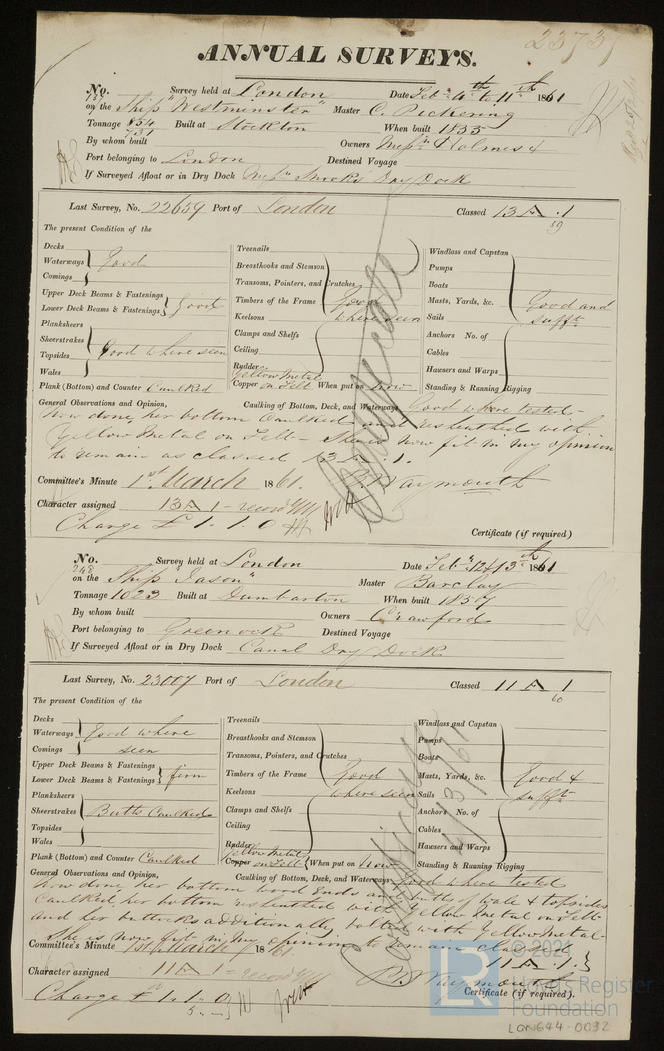 23737
ANNUAL SURVEYS.
No. 197 Survey held at London Date Feb 4th to 11th 1861
on the Ship "Westminster" Master C. Pickering
Tonnage 854 731 Built at Stockton When built 1855
By whom built Owners Messrs Holmes &
Port belonging to London Destined Voyage
If Surveyed Afloat or in Dry Dock Dry Dock
Last Survey, No. 22659 Port of London Classed 13 A .1
59
The present Condition of the
Decks
Waterways Good
Comings
Upper Deck Beams & Fastenings
Lower Deck Beams & Fastenings Good
Planksheers
Sheerstrakes
Topsides Good where seen
Wales
Plank (Bottom) and Counter Caulked
Treenails
Breasthooks and Stemson
Transoms, Pointers, and Crutches
Timbers of the Frame Good
Keelsons where seen
Clamps and Shelfs
Ceiling
Rudder
Yellow Metal
Copper on Felt When put on now
Windlass and Capstan
Pumps
Boats
Masts, Yards, &c. Good and
Sails sufft
Anchors No. of
Cables
Hawsers and Warps
Standing & Running Rigging
General Observations and Opinion, Caulking of Bottom, Deck, and Waterways Good where tested -
now done, her bottom Caulked and resheathed with
Yellow Metal on Felt - She is now fit in my opinion
to remain as classed 13 A .1.
Certificate
Committee's Minute 1st March 1861.
P. Waymouth
Character assigned 13 A 1 -
Charge £ 1 . 1 . 0
Certificate (if required)
No. 248 Survey held at London Date Feb 12th 13th 1861
on the Ship "Jason" Master Barclay
Tonnage 1023 Built at Dumbarton When built 1857
By whom built Owners Crawford
Port belonging to Greenock Destined Voyage
If Surveyed Afloat or in Dry Dock Canal Dry Dock
Last Survey, No. 23007 Port of London Classed 11 A 1
60
The present Condition of the
Decks
Waterways Good where
Comings seen
Upper Deck Beams & Fastenings
Lower Deck Beams & Fastenings firm
Planksheers
Sheerstrakes Butts Caulked
Topsides
Wales
Plank (Bottom) and Counter Caulked
Treenails
Breasthooks and Stemson
Transoms, Pointers, and Crutches
Timbers of the Frame Good
Keelsons where seen
Clamps and Shelfs
Ceiling
Rudder
Yellow Metal
Copper on Felt When put on Now
Windlass and Capstan
Pumps
Boats
Masts, Yards, &c. Good &
Sails sufft
Anchors No. of
Cables
Hawsers and Warps
Standing & Running Rigging
General Observations and Opinion, Caulking of Bottom, Deck, and Waterways Good where tested
now done, her bottom wood ends and butts of wale & topsides
Caulked, her bottom resheathed with Yellow metal on Felt
and her buttocks additionally bolted with Yellow Metal -
She is now fit in my opinion to remain classed
11 A .1.
Certificate
Committee's Minute 1st March 1861
P. Waymouth
Character assigned 11 A 1 -
Charge £ 1 . 1 . 0
Certificate (if required).
LR
© 2021
Lloyd's Register
Foundation
LON644-0032